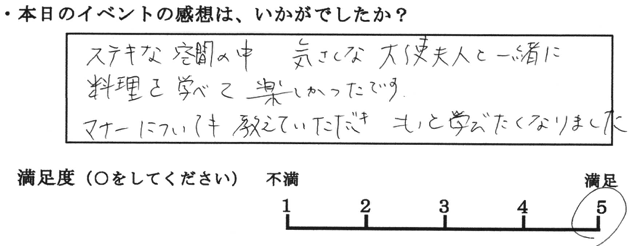 ・本日のイベントの感想は、いかがでしたか？
ステキな空間の中 気さくな大使夫人と一緒に
料理を学べて楽しかったです。
マナーについても教えていただき もっと学びたくなりました
満足度（○をしてください） 不満 満足
1 2 3 4 5